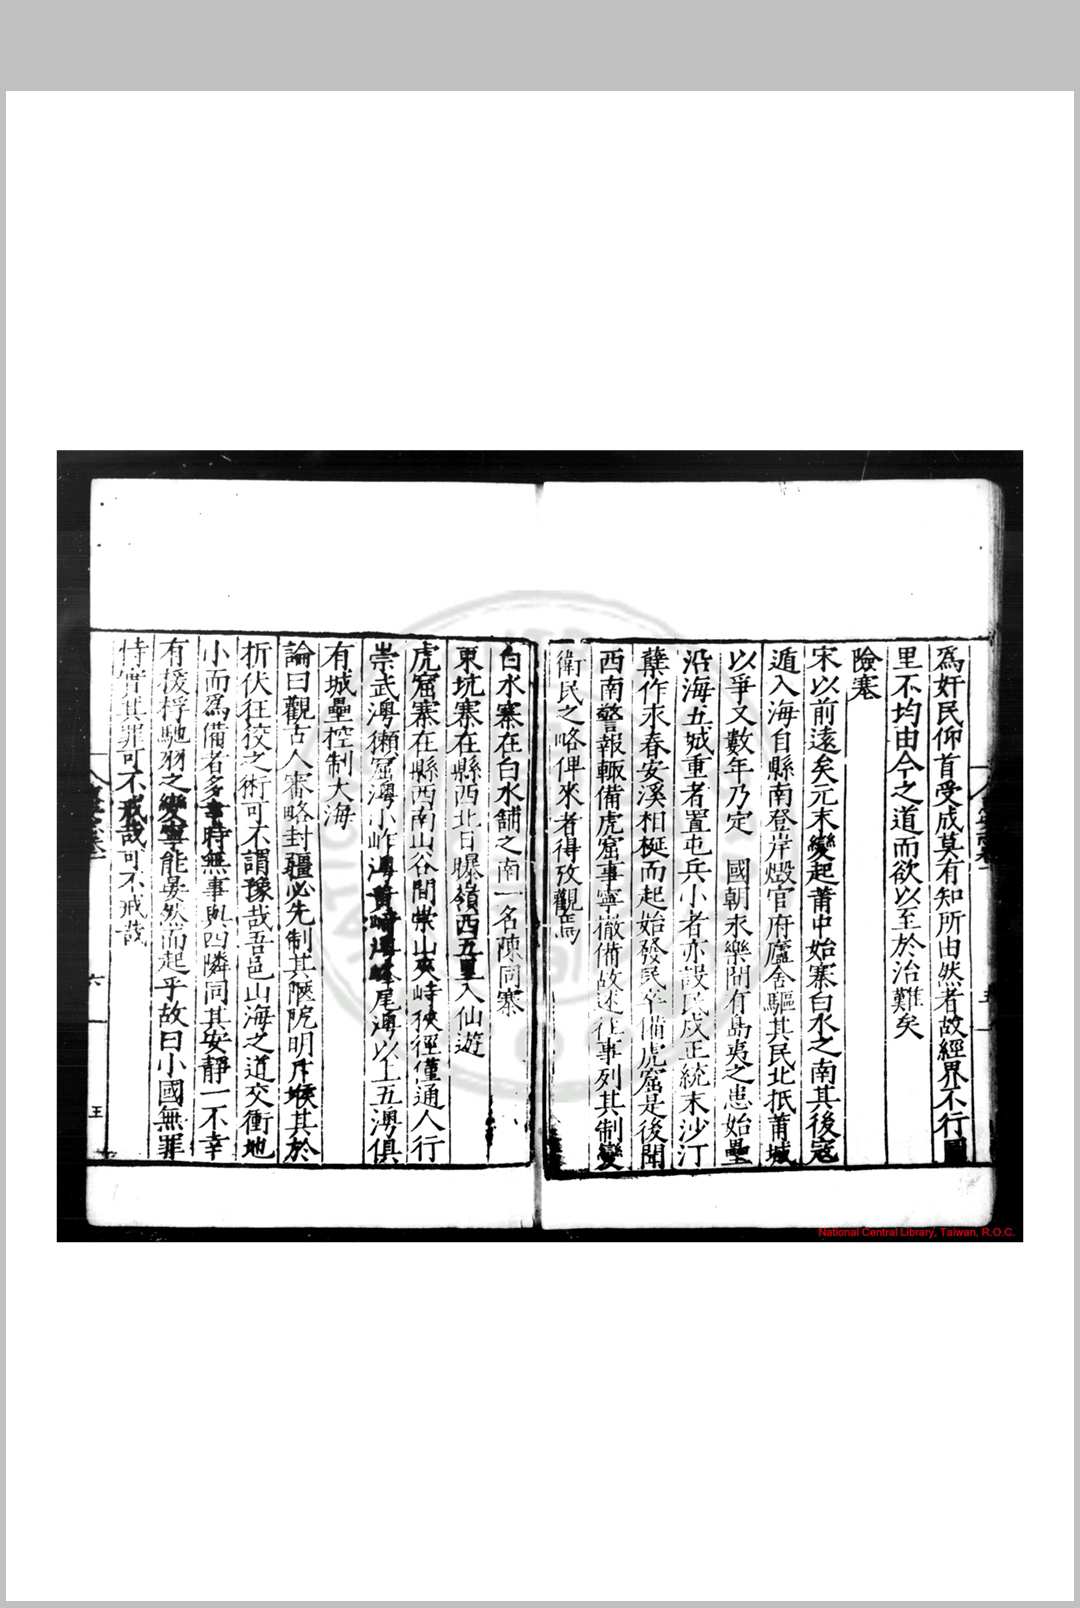 爲奸民仰首受成莫有知所由然者故經界不行圖
里不均由今之道而欲以至於治難矣
險塞
宋以前遠矣元末變起莆中始寨白水之南其後寇
遁入海自縣南登岸燬官府廬舍驅其民北抵莆城
以爭又數年乃定 國朝永樂間有島夷之患始壘
沿海五城重者置屯兵小者亦設民戍正統末沙汀
孽作來春安溪相梃而起始發民卒備虎窟是後聞
西南警報輙備虎窟事寧撤備故述往事列其制變
衛民之略俾來者得攷觀焉
白水寨在白水舖之南一名陳同寨
東坑寨在縣西北日曝嶺西五里入仙遊
虎窟寨在縣西南山谷間崇山夾峙狹徑僅通人行
崇武澳獺窟澳小岞澳黄崎澳峰尾澳以上五澳俱
有城壘控制大海
論曰觀古人審略封疆必先制其阨明斥堠其於
折伏狂狡之術可不謂豫哉吾邑山海之道交衝地
小而爲備者多事時無事與四隣同其安靜一不幸
有援桴馳羽之變寧能晏然而起乎故曰小國無罪
恃實其罪可不戒哉可不戒哉
六
王
National Central Library, Taiwan, R.O.C.